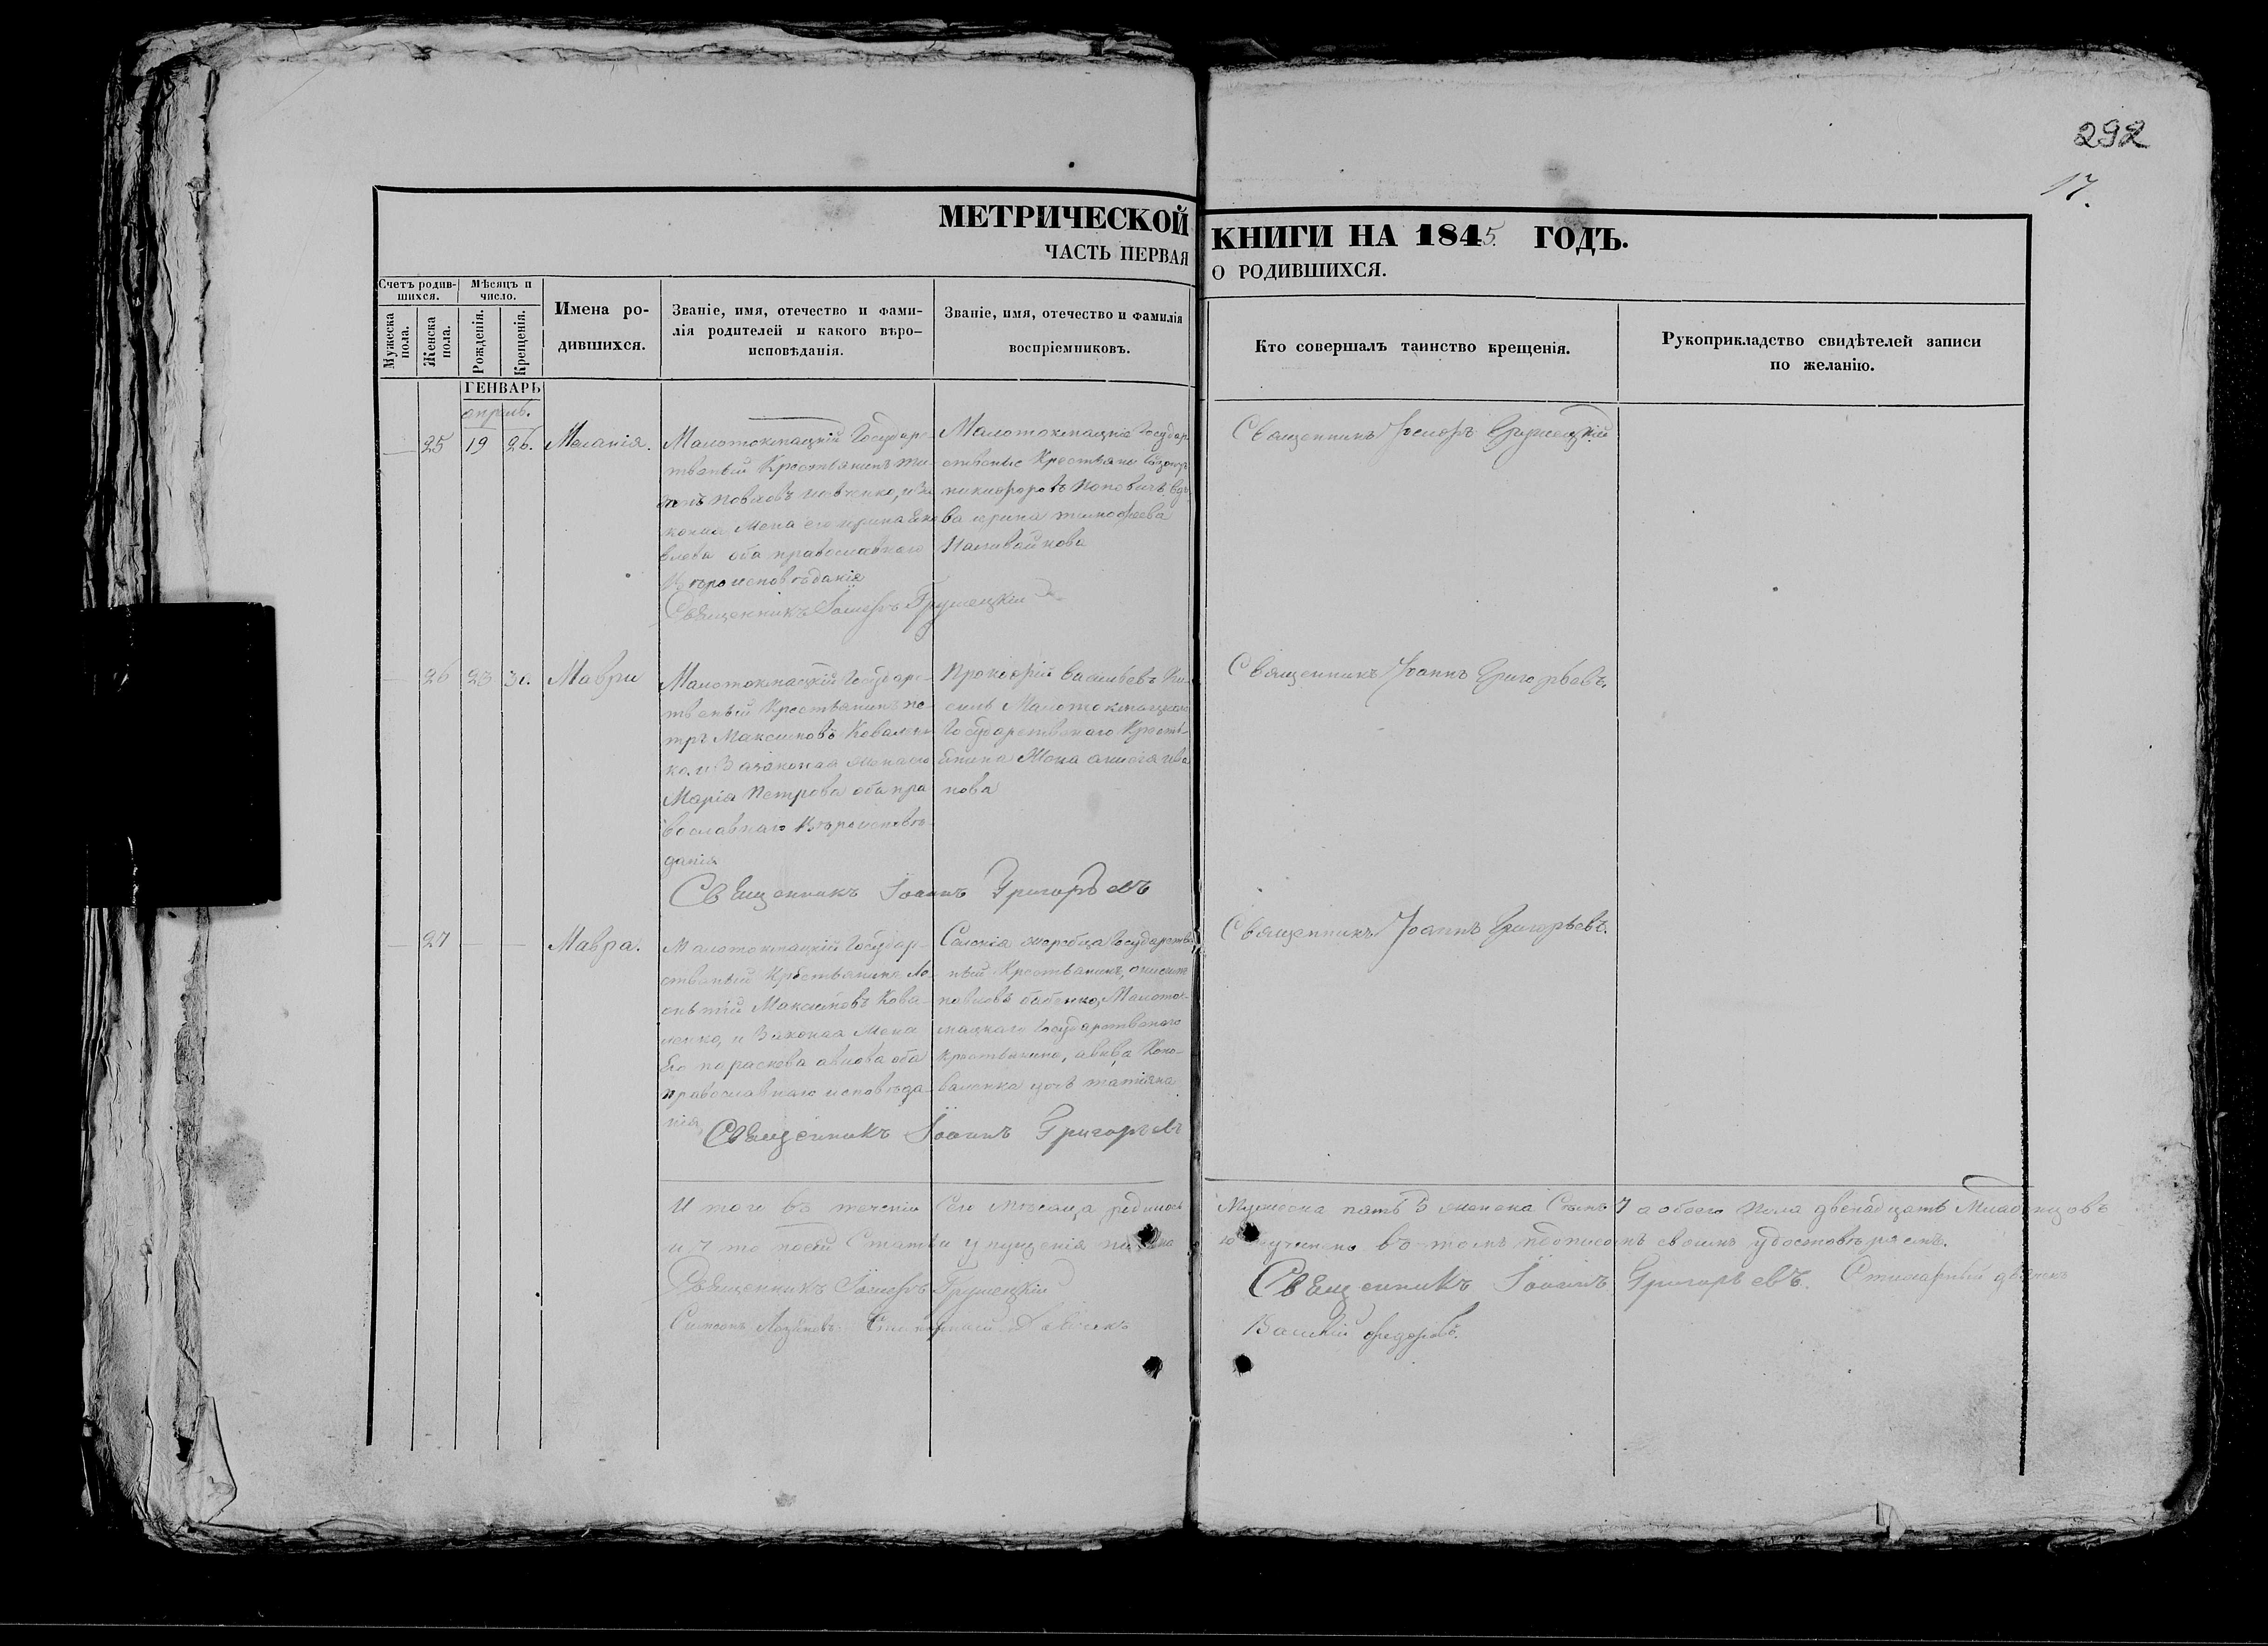 292
17.
МЕТРИЧЕСКОЙ КНИГИ НА 1845 ГОДЪ.
ЧАСТЬ ПЕРВАЯ О РОДИВШИХСЯ.
Счетъ родившихся.
Мужеска пола.
Женска пола.
Мѣсяцъ и число.
Рожденія.
Крещенія.
Имена родившихся.
Званіе, имя, отечество и фами-
лія родителей и какого вѣро-
исповѣданія.
Званіе, имя, отечество и фамилія
воспріемниковъ.
Кто совершалъ таинство крещенія.
Рукоприкладство свидѣтелей записи
по желанію.
ГЕНВАРЬ
апрель.
25 19 26. Меланія.
Малотокмацкій Государс-
твеный Крестьянинъ Ти-
павловъ и За-
конная Жена его ирина
оба православнаго
Вѣроисповѣданія
Священникъ Іосифъ Грушецкій
Малотокмацкіе Государ
ственые Крестьяне
никифоровъ Поповичъ, вдо-
ва ирина тимофѣева
Наливайкова
Священникъ Іосифъ Грушецкій
26 23 30. Маври
Малотокмацкій Государс-
твеный Крестьянинъ пе-
тръ Максимовъ Ковален-
ко. и Законная Жена его
Марія Петрова оба пра
вославнаго Вѣроисповѣ-
данія
Священникъ Іоаннъ Григорьевъ
Прокофій васильевъ
Малотокмацкаго
Государственаго Кресть-
янина Жена анисія ива
нова
Священникъ Іоаннъ Григорьевъ.
27 Мавра.
Малотокмацкій Государ-
ственый Крестьянинъ Ле-
онтій Максимовъ Кова-
ленко, и Законая Жена
Его параскева оба
православнаго исповѣда-
нія,
Священникъ Іоаннъ Григорьевъ
Селенія жеребца Государстве
ный Крестьянинъ, онисимъ
павловъ бабенко, Малоток-
мацкаго Государственаго
Крестьянина,
дочь татіяна
Священникъ Іоаннъ Григорьевъ.
И того въ теченіи Сего мѣсяца родилось Мужеска пять 5 женска Семь 7 а обоего Пола двенадцать Младенцовъ
и что посей Статьи упущенія въ томъ подписомъ своимъ удостовѣряемъ.
Священникъ Іосифъ Грушецкій Священникъ Іоаннъ Григорьевъ.
Симеонъ
Василій федоровъ.